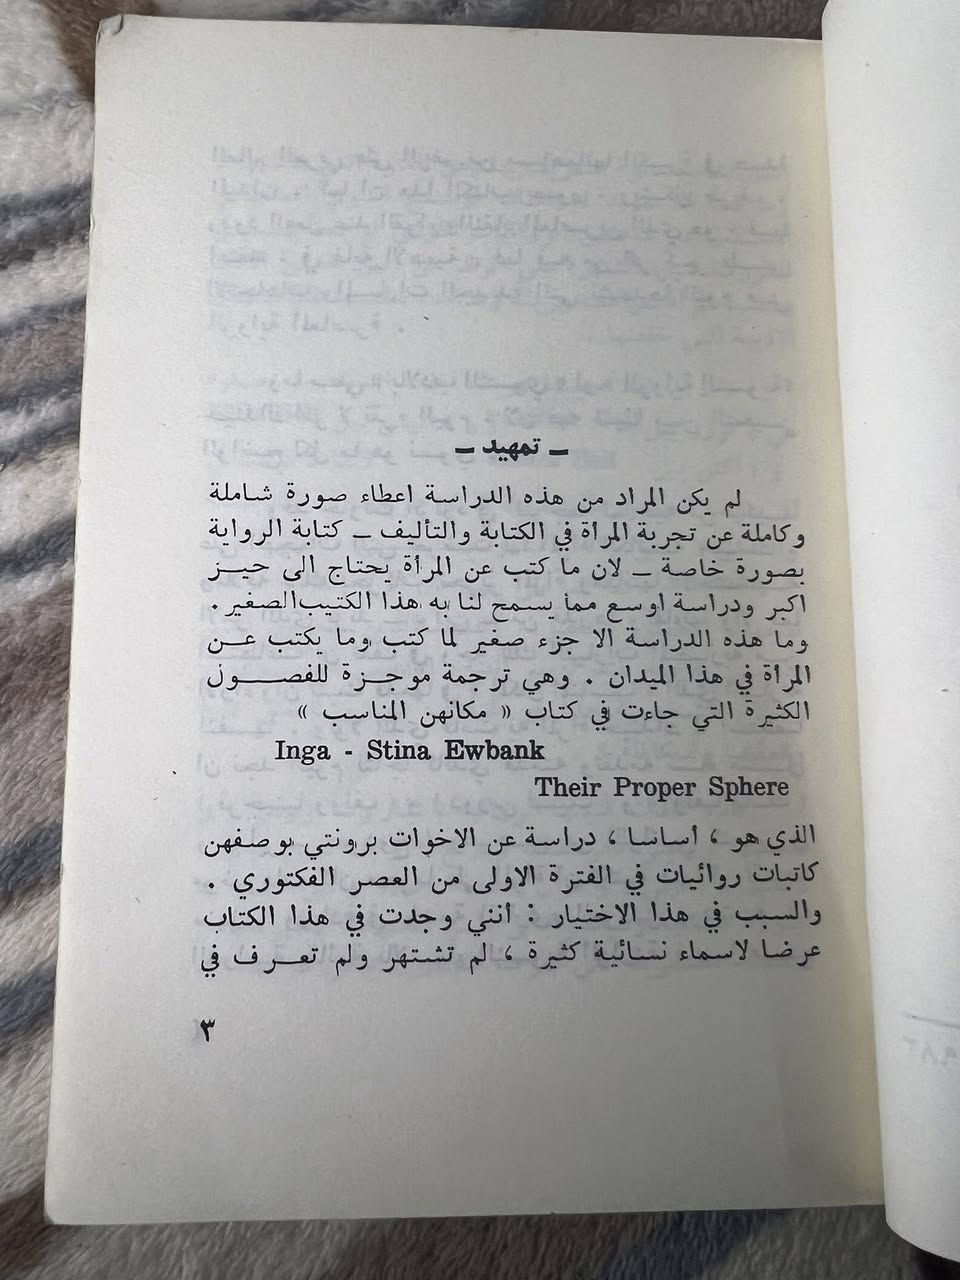 ــ تمهيد ــ
لم يكن المراد من هذه الدراسة اعطاء صورة شاملة
وكاملة عن تجربة المرأة في الكتابة والتأليف ــ كتابة الرواية
بصورة خاصة ــ لان ما كتب عن المرأة يحتاج الى حيز
اكبر ودراسة اوسع مما يسمح لنا به هذا الكتيب الصغير .
وما هذه الدراسة الا جزء صغير لما كتب وما يكتب عن
المرأة في هذا الميدان . وهي ترجمة موجزة للفصول
الكثيرة التي جاءت في كتاب « مكانهن المناسب »
Inga - Stina Ewbank
Their Proper Sphere
الذي هو ، أساسا ، دراسة عن الاخوات برونتي بوصفهن
كاتبات روائيات في الفترة الاولى من العصر الفكتوري .
والسبب في هذا الاختيار : أنني وجدت في هذا الكتاب
عرضا لاسماء نسائية كثيرة ، لم تشتهر ولم تعرف في
٣